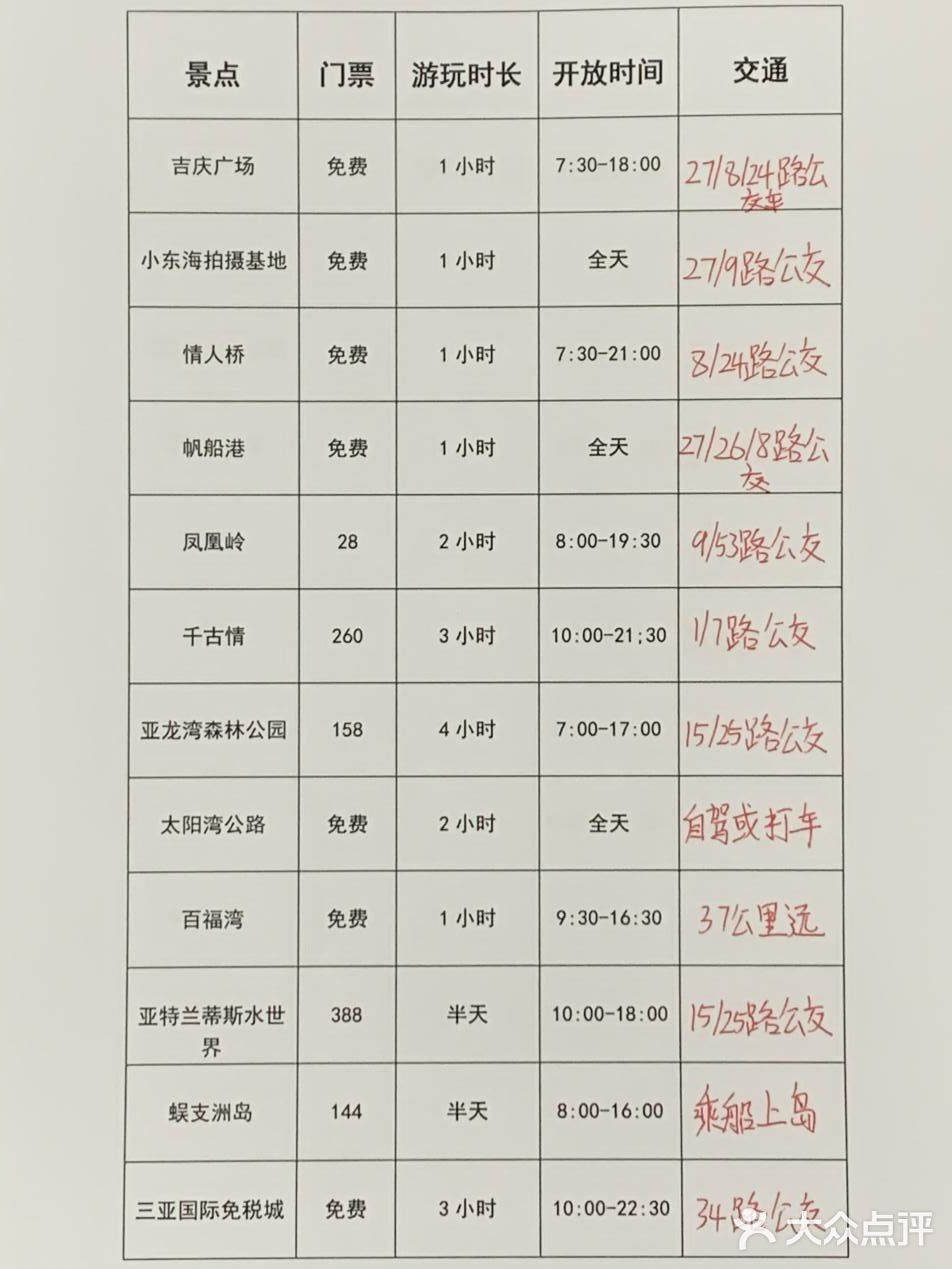 景点 门票 游玩时长 开放时间 交通
吉庆广场 免费 1 小时 7:30-18:00 27/8/24路公
交车
小东海拍摄基地 免费 1 小时 全天 27/9路公交
情人桥 免费 1 小时 7:30-21:00 8/24路公交
帆船港 免费 1 小时 全天 27/26/8路公
交
凤凰岭 28 2 小时 8:00-19:30 9/53路公交
千古情 260 3 小时 10:00-21;30 1/7路公交
亚龙湾森林公园 158 4 小时 7:00-17:00 15/25路公交
太阳湾公路 免费 2 小时 全天 自驾或打车
百福湾 免费 1 小时 9:30-16:30 37公里远
亚特兰蒂斯水世 388 半天 10:00-18:00 15/25路公交
界
蜈支洲岛 144 半天 8:00-16:00 乘船上岛
三亚国际免税城 免费 3 小时 10:00-22:30 34路公交
大众点评